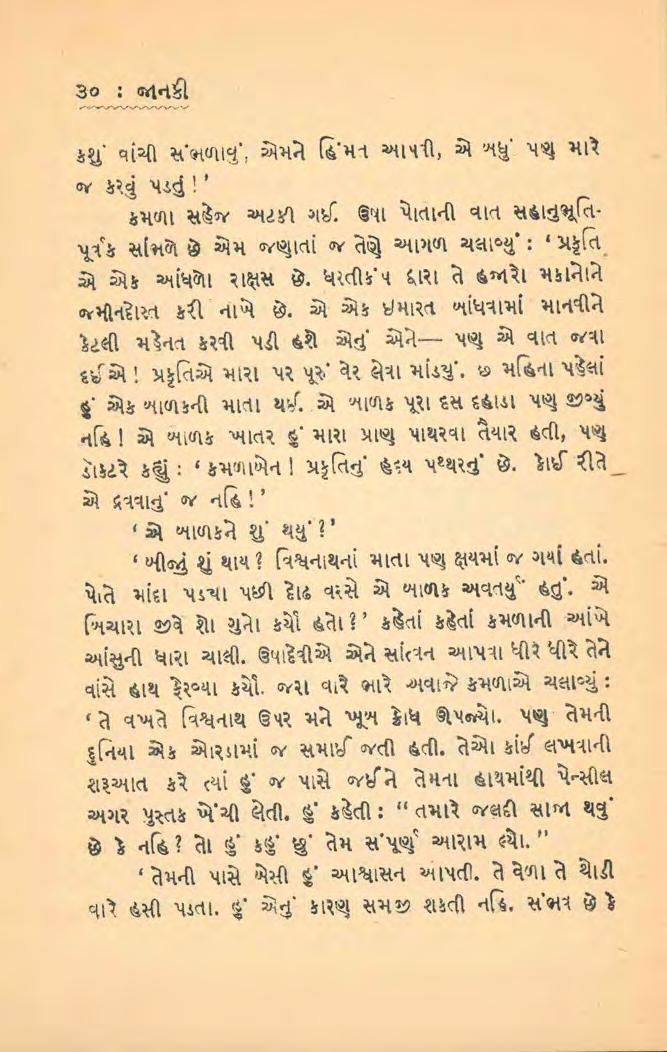 ૩૦ : જાનકી
કશું વાંચી સંભળાવું, એમને હિંમત આપવી, એ બધું પણ મારે
જ કરવું પડતું !'
કમળા સહેજ અટકી ગઈ. ઉષા પોતાની વાત સહાનુભૂતિ-
પૂર્વક સાંભળે છે એમ જણાતાં જ તેણે આગળ ચલાવ્યું : ‘ પ્રકૃતિ
એ એક આંધળો રાક્ષસ છે. ધરતીકંપ દ્વારા તે હજારો મકાનોને
જમીનદોસ્ત કરી નાખે છે. એ એક ઇમારત બાંધવામાં માનવીને
કેટલી મહેનત કરવી પડી હશે એનું એને— પણ એ વાત જવા
દઈએ ! પ્રકૃતિએ મારા પર પૂરું વેર લેવા માંડ્યું. છ મહિના પહેલાં
હું એક બાળકની માતા થઈ. એ બાળક પૂરા દસ દહાડા પણ જીવ્યું
નહિ ! એ બાળક ખાતર હું મારા પ્રાણ પાથરવા તૈયાર હતી, પણ
ડૉકટરે કહ્યું : ‘ કમળાબેન ! પ્રકૃતિનું હૃદય પથ્થરનું છે. કોઈ રીતે
એ દ્રવવાનું જ નહિ !'
‘ એ બાળકને શું થયું ?'
‘ બીજું શું થાય ? વિશ્વનાથનાં માતા પણ ક્ષયમાં જ ગયાં હતાં.
પોતે માંદા પડયા પછી દોઢ વરસે એ બાળક અવતર્યું હતું. એ
બિચારા જીવે શો ગુનો કર્યો હતો ?' કહેતાં કહેતાં કમળાની આંખે
આંસુની ધારા ચાલી. ઉષાદેવીએ એને સાંત્વન આપવા ધીરે ધીરે તેને
વાંસે હાથ ફેરવ્યા કર્યો. જરા વારે ભારે અવાજે કમળાએ ચલાવ્યું :
‘ તે વખતે વિશ્વનાથ ઉપર મને ખૂબ ક્રોધ ઊપજ્યો. પણ તેમની
દુનિયા એક ઓરડામાં જ સમાઈ જતી હતી. તેઓ કાંઈ લખવાની
શરૂઆત કરે ત્યાં હું જ પાસે જઈને તેમના હાથમાંથી પેન્સીલ
અગર પુસ્તક ખેંચી લેતી. હું કહેતી : “ તમારે જલદી સાજા થવું
છે કે નહિ ? તો હું કહું છું તેમ સંપૂર્ણ આરામ લ્યો. ”
‘ તેમની પાસે બેસી હું આશ્વાસન આપતી. તે વેળા તે થોડી
વારે હસી પડતા. હું એનું કારણ સમજી શકતી નહિ. સંભવ છે કે